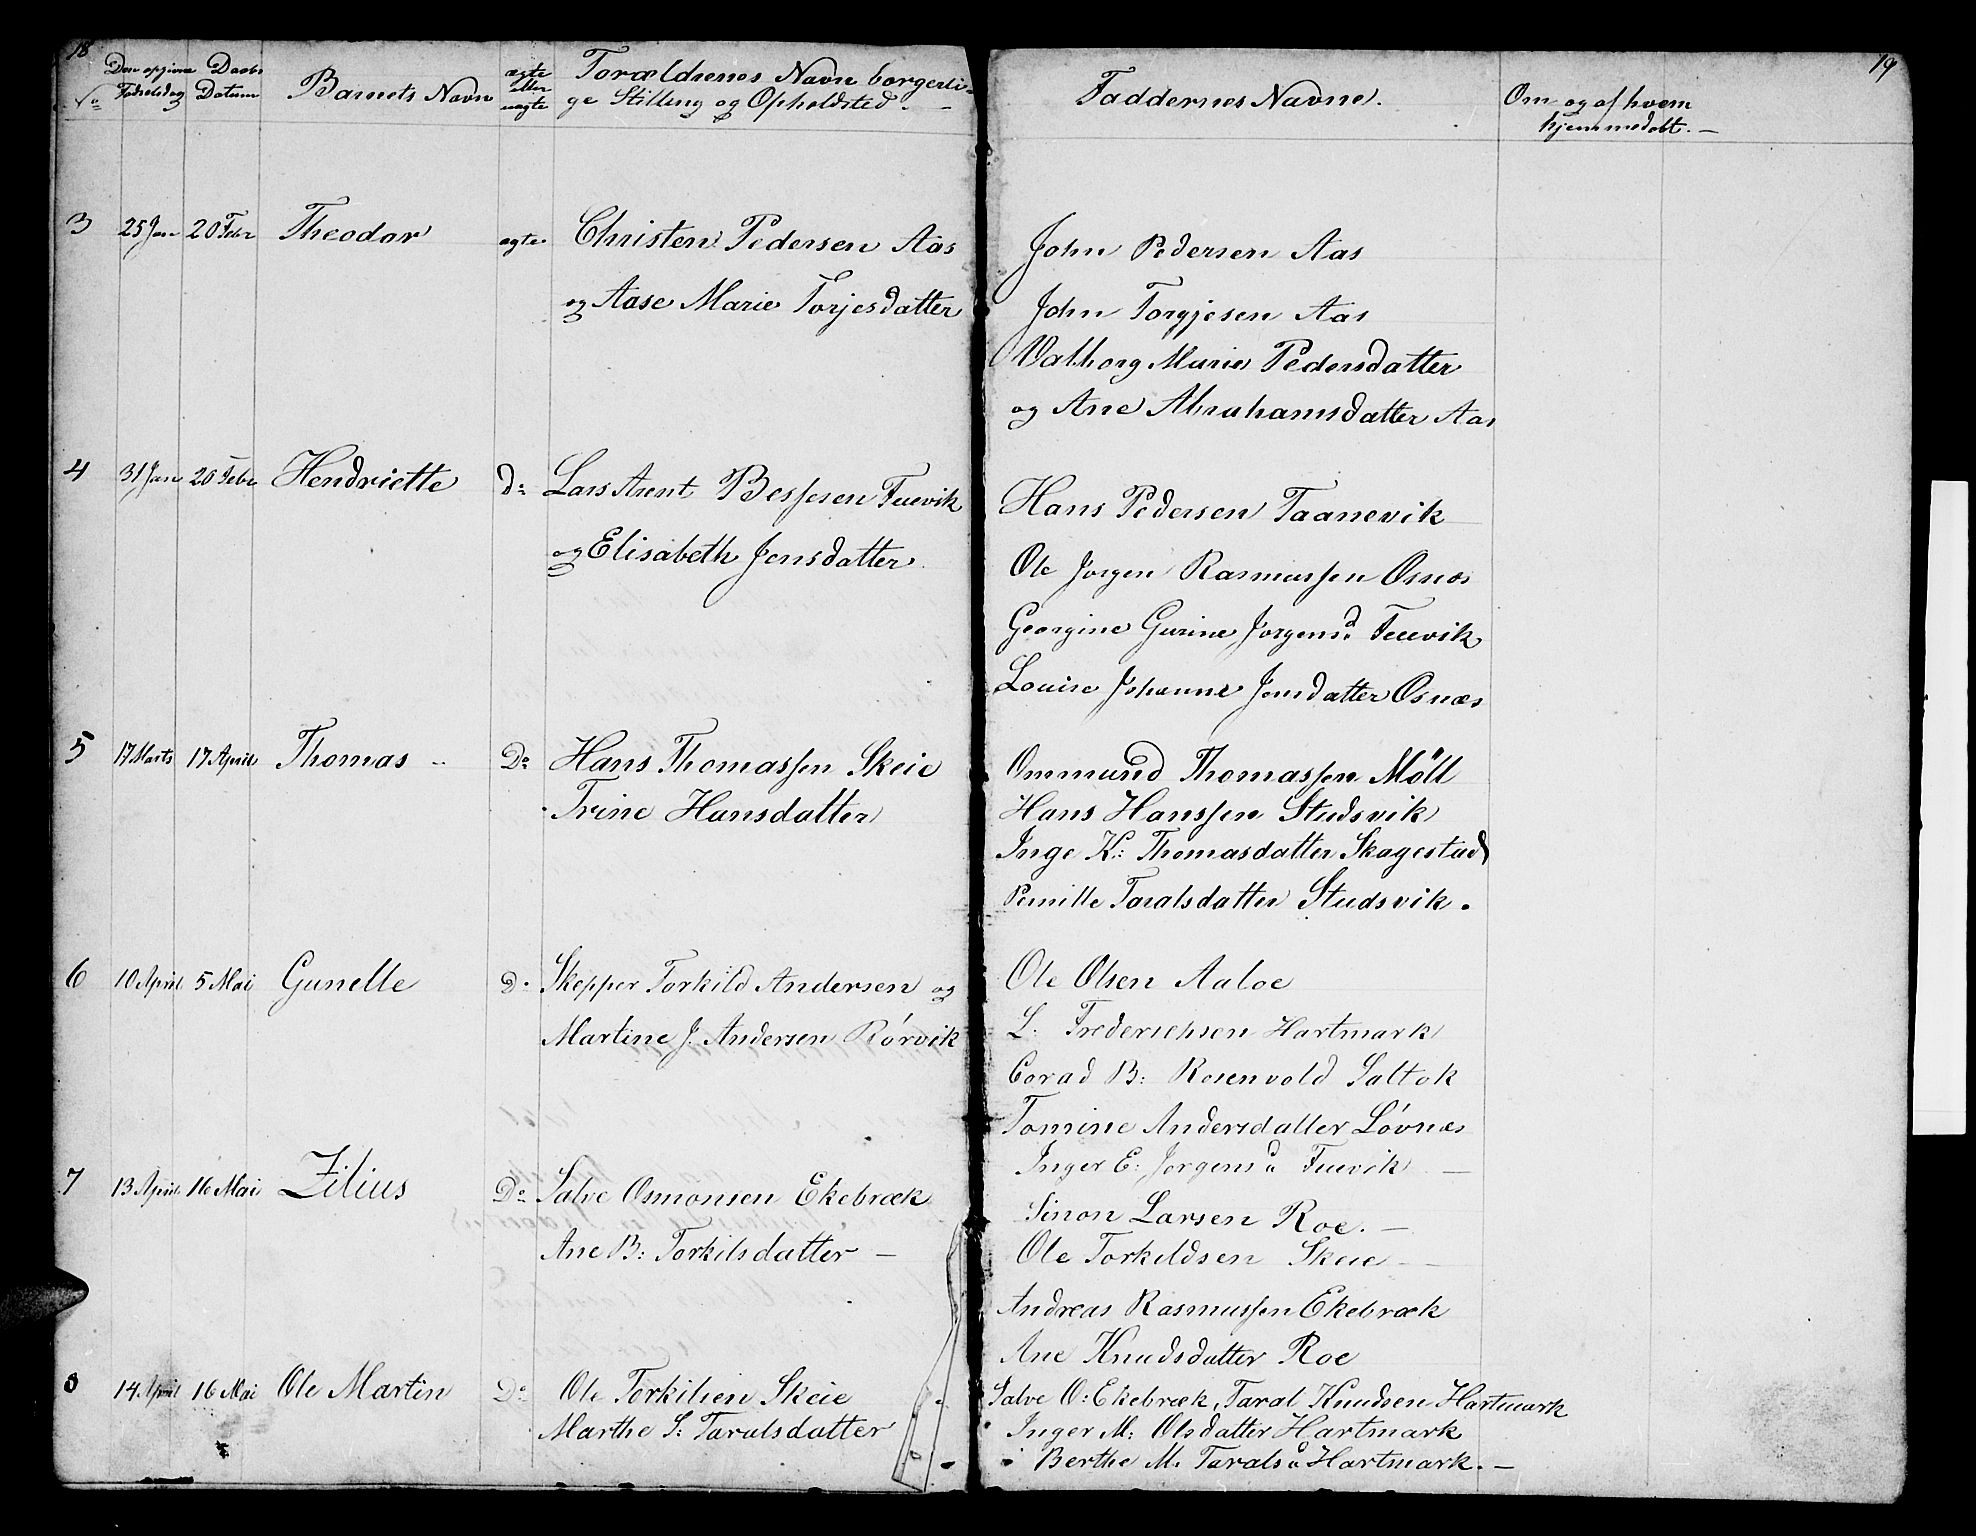 18
No
Den opgivne Fødselsdag
Daabs Datum
Barnets Navn
ægte eller uægte
Forældrenes Navn borgerli-
ge Stilling og Opholdsted. -
3 25 Jan 20 Febr Theodor ægte Christen Pedersen Aas
og Aase Marie Torjesdatter
4 31 Jan 20 Febr Hendriette Do Lars Arent Bessesen Tuevik
og Elisabeth Jensdatter
5 17 Marts 17 April Thomas - Do Hans Thomassen Skeie
Trine Hansdatter
6 10 April 5 Mai Gunelle Do Skepper Torkild Andersen og
Martine J. Andersen Rörvik
7 13 April 16 Mai Zilius Do Salve Osmonsen Ekebræk
Ane B: Torkilsdatter -
8 14 April 16 Mai Ole Martin Do Ole Torkilsen Skeie
Marthe S: Taralsdatter
19
Faddernes Navne.
Om og af hvem
hjemmedøbt. -
John Pedersen Aas
John Torgjesen Aas
Valborg Marie Pedersdatter
og Ane Abrahamsdatter Aas
Hans Pedersen Taanevik
Ole Jørgen Rasmussen Osnæs
Georgine Gurine Jørgensd Tuevik
Louise Johanne Jensdatter Osnæs
Ommund Thomassen Möll
Hans Hanssen Studsvik
Inge K: Thomasdatter Skagestad
Pernille Taralsdatter Studsvik.
Ole Olsen Aaloe
L: Frederichsen Hartmark
Corad B: Rosenvold Saltok
Tomine Andersdatter Lövnæs
Inger E: Jørgensd Tuevik -
Simon Larsen Roe. -
Ole Torkildsen Skeie -
Andreas Rasmussen Ekebræk
Ane Knudsdatter Roe
Salve O: Ekebræk, Taral Knudsen Hartmark
Inger M: Olsdatter Hartmark
Berthe M. Taralsd Hartmark. -